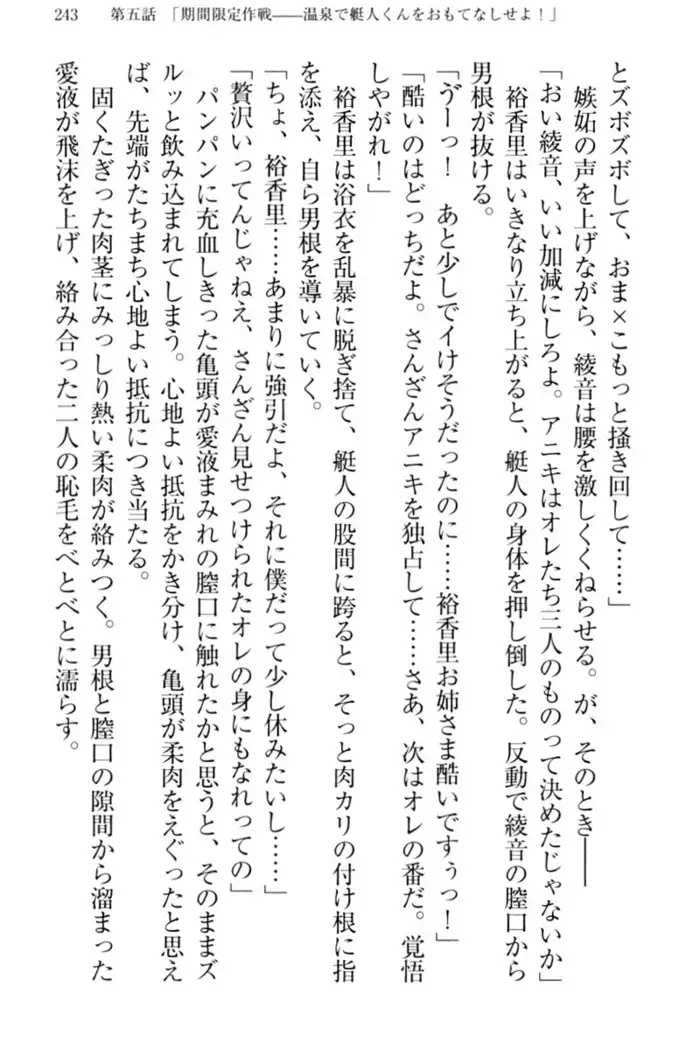 243　第五話　「期間限定作戦――温泉で艇人くんをおもてなしせよ！」
とズボズボして、おま×こもっと掻き回して……」
嫉妬の声を上げながら、綾音は腰を激しくくねらせる。が、そのとき――
「おい綾音、いい加減にしろよ。アニキはオレたち三人のものって決めたじゃないか」
裕香里はいきなり立ち上がると、艇人の身体を押し倒した。反動で綾音の膣口から
男根が抜ける。
「ゔーっ！　あと少しでイけそうだったのに……裕香里お姉さま酷いですぅっ！」
「酷いのはどっちだよ。さんざんアニキを独占して……さあ、次はオレの番だ。覚悟
しやがれ！」
裕香里は浴衣を乱暴に脱ぎ捨て、艇人の股間に跨ると、そっと肉カリの付け根に指
を添え、自ら男根を導いていく。
「ちょ、裕香里……あまりに強引だよ、それに僕だって少し休みたいし……」
「贅沢いってんじゃねえ、さんざん見せつけられたオレの身にもなれっての」
パンパンに充血しきった亀頭が愛液まみれの膣口に触れたかと思うと、そのままズ
ルッと飲み込まれてしまう。心地よい抵抗をかき分け、亀頭が柔肉をえぐったと思え
ば、先端がたちまち心地よい抵抗につき当たる。
固くたぎった肉茎にみっしり熱い柔肉が絡みつく。男根と膣口の隙間から溜まった
愛液が飛沫を上げ、絡み合った二人の恥毛をべとべとに濡らす。